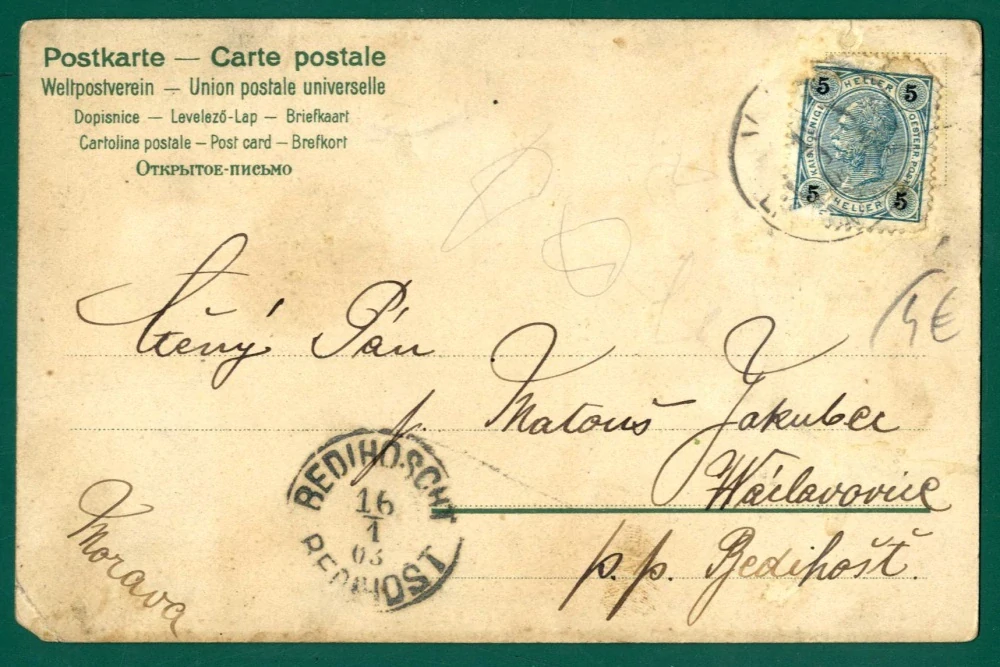 Postkarte — Carte postale
Weltpostverein — Union postale universelle
Dopisnice — Levelező-Lap — Briefkaart
Cartolina postale — Post card — Brefkort
Открытое-письмо
5 HELLER 5
KAIS. KOENIGL. OESTERR. POST
5 HELLER 5
4€
Ctěný Pán
p. Matouš Jakubec
Wáclavovice
p. p. Bedihošt.
Morava
BEDIHOSCHT
16
1
03
BEDIHOST